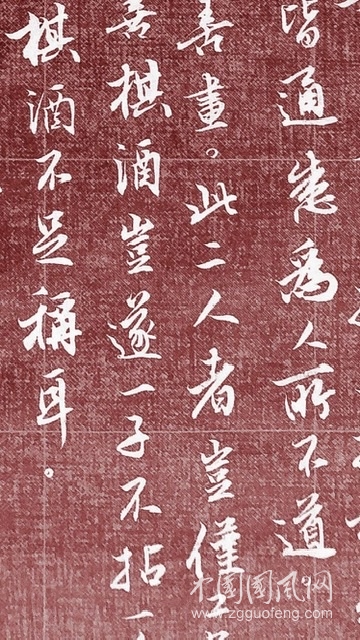 皆通悉為人所不道
善畫。此二人者豈僅
善棋酒豈遂一子不拈一
棋酒不足稱耳。
中国國风网
www.zgguofeng.com